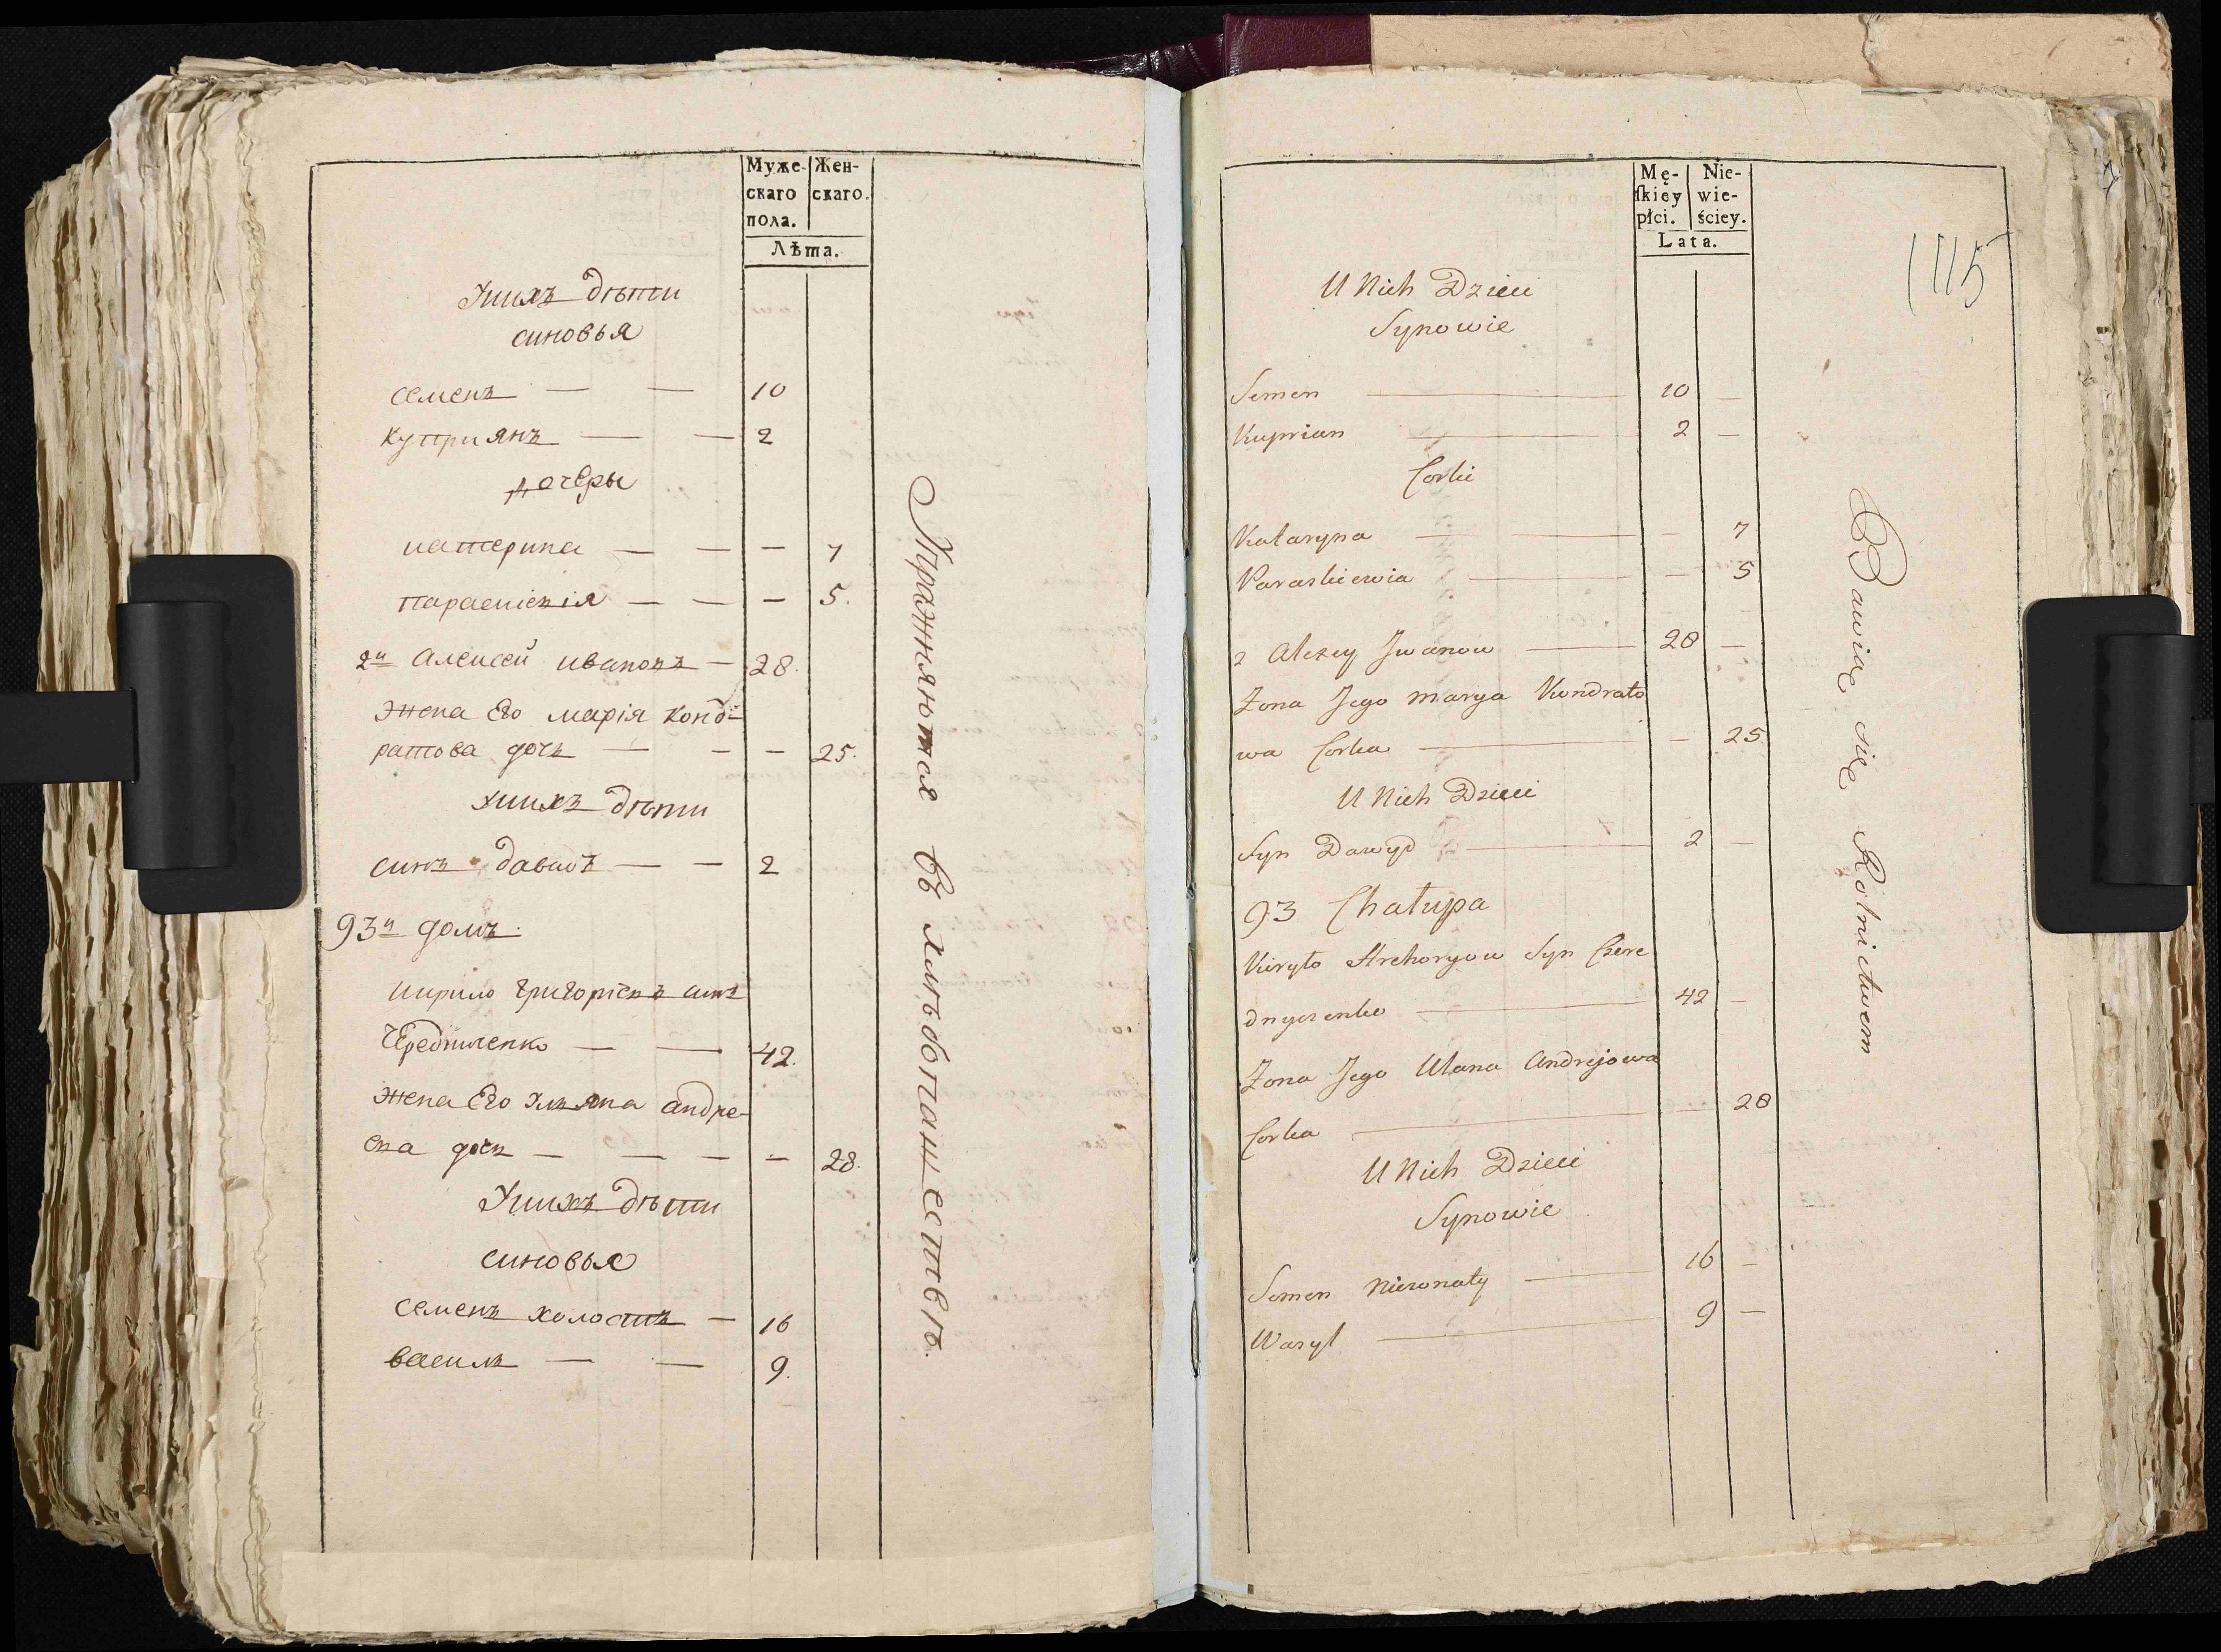 Муже- Жен-
скаго скаго.
пола.
Лѣта.
Унихъ дѣти
синовья
семенъ — — 10
куприянъ — — 2
дочеры
катерина — — — 7
параскіевія — — — 5.
2й Алексей ивановъ — 28.
жена Его марія конд-
ратова дочь — — — 25.
унихъ дѣти
синъ давидъ — — 2
93й домъ.
кирило григоріевъ синъ
Чередниченко — — 42.
жена Его Ульяна андре-
ева дочь — — — — 28.
Унихъ дѣти
синовья
семенъ холостъ — 16
василь — — 9.
Упражняются въ хлѣбопашествѣ.
Mę- Nie-
skiey wie-
płci. ściey.
Lata.
1115
U Nich Dzieci
Synowie
Semen — 10 —
Kuprian — 2 —
Corki
Kataryna — — 7
Paraskiewia — — 5
2 Alexey Jwanow — 28 —
Żona Jego Marya Kondrato
wa Corka — — 25
U Nich Dzieci
Syn Dawyd — 2 —
93 Chałupa
Kiryło Hrehoryow Syn Czere
dnyczenko — 42 —
Żona Jego Ulana Andrejowa
Corka — — 28
U Nich Dzieci
Synowie
Semen Nieżonaty — 16 —
Wasyl — 9 —
Bawią się Rolnictwem